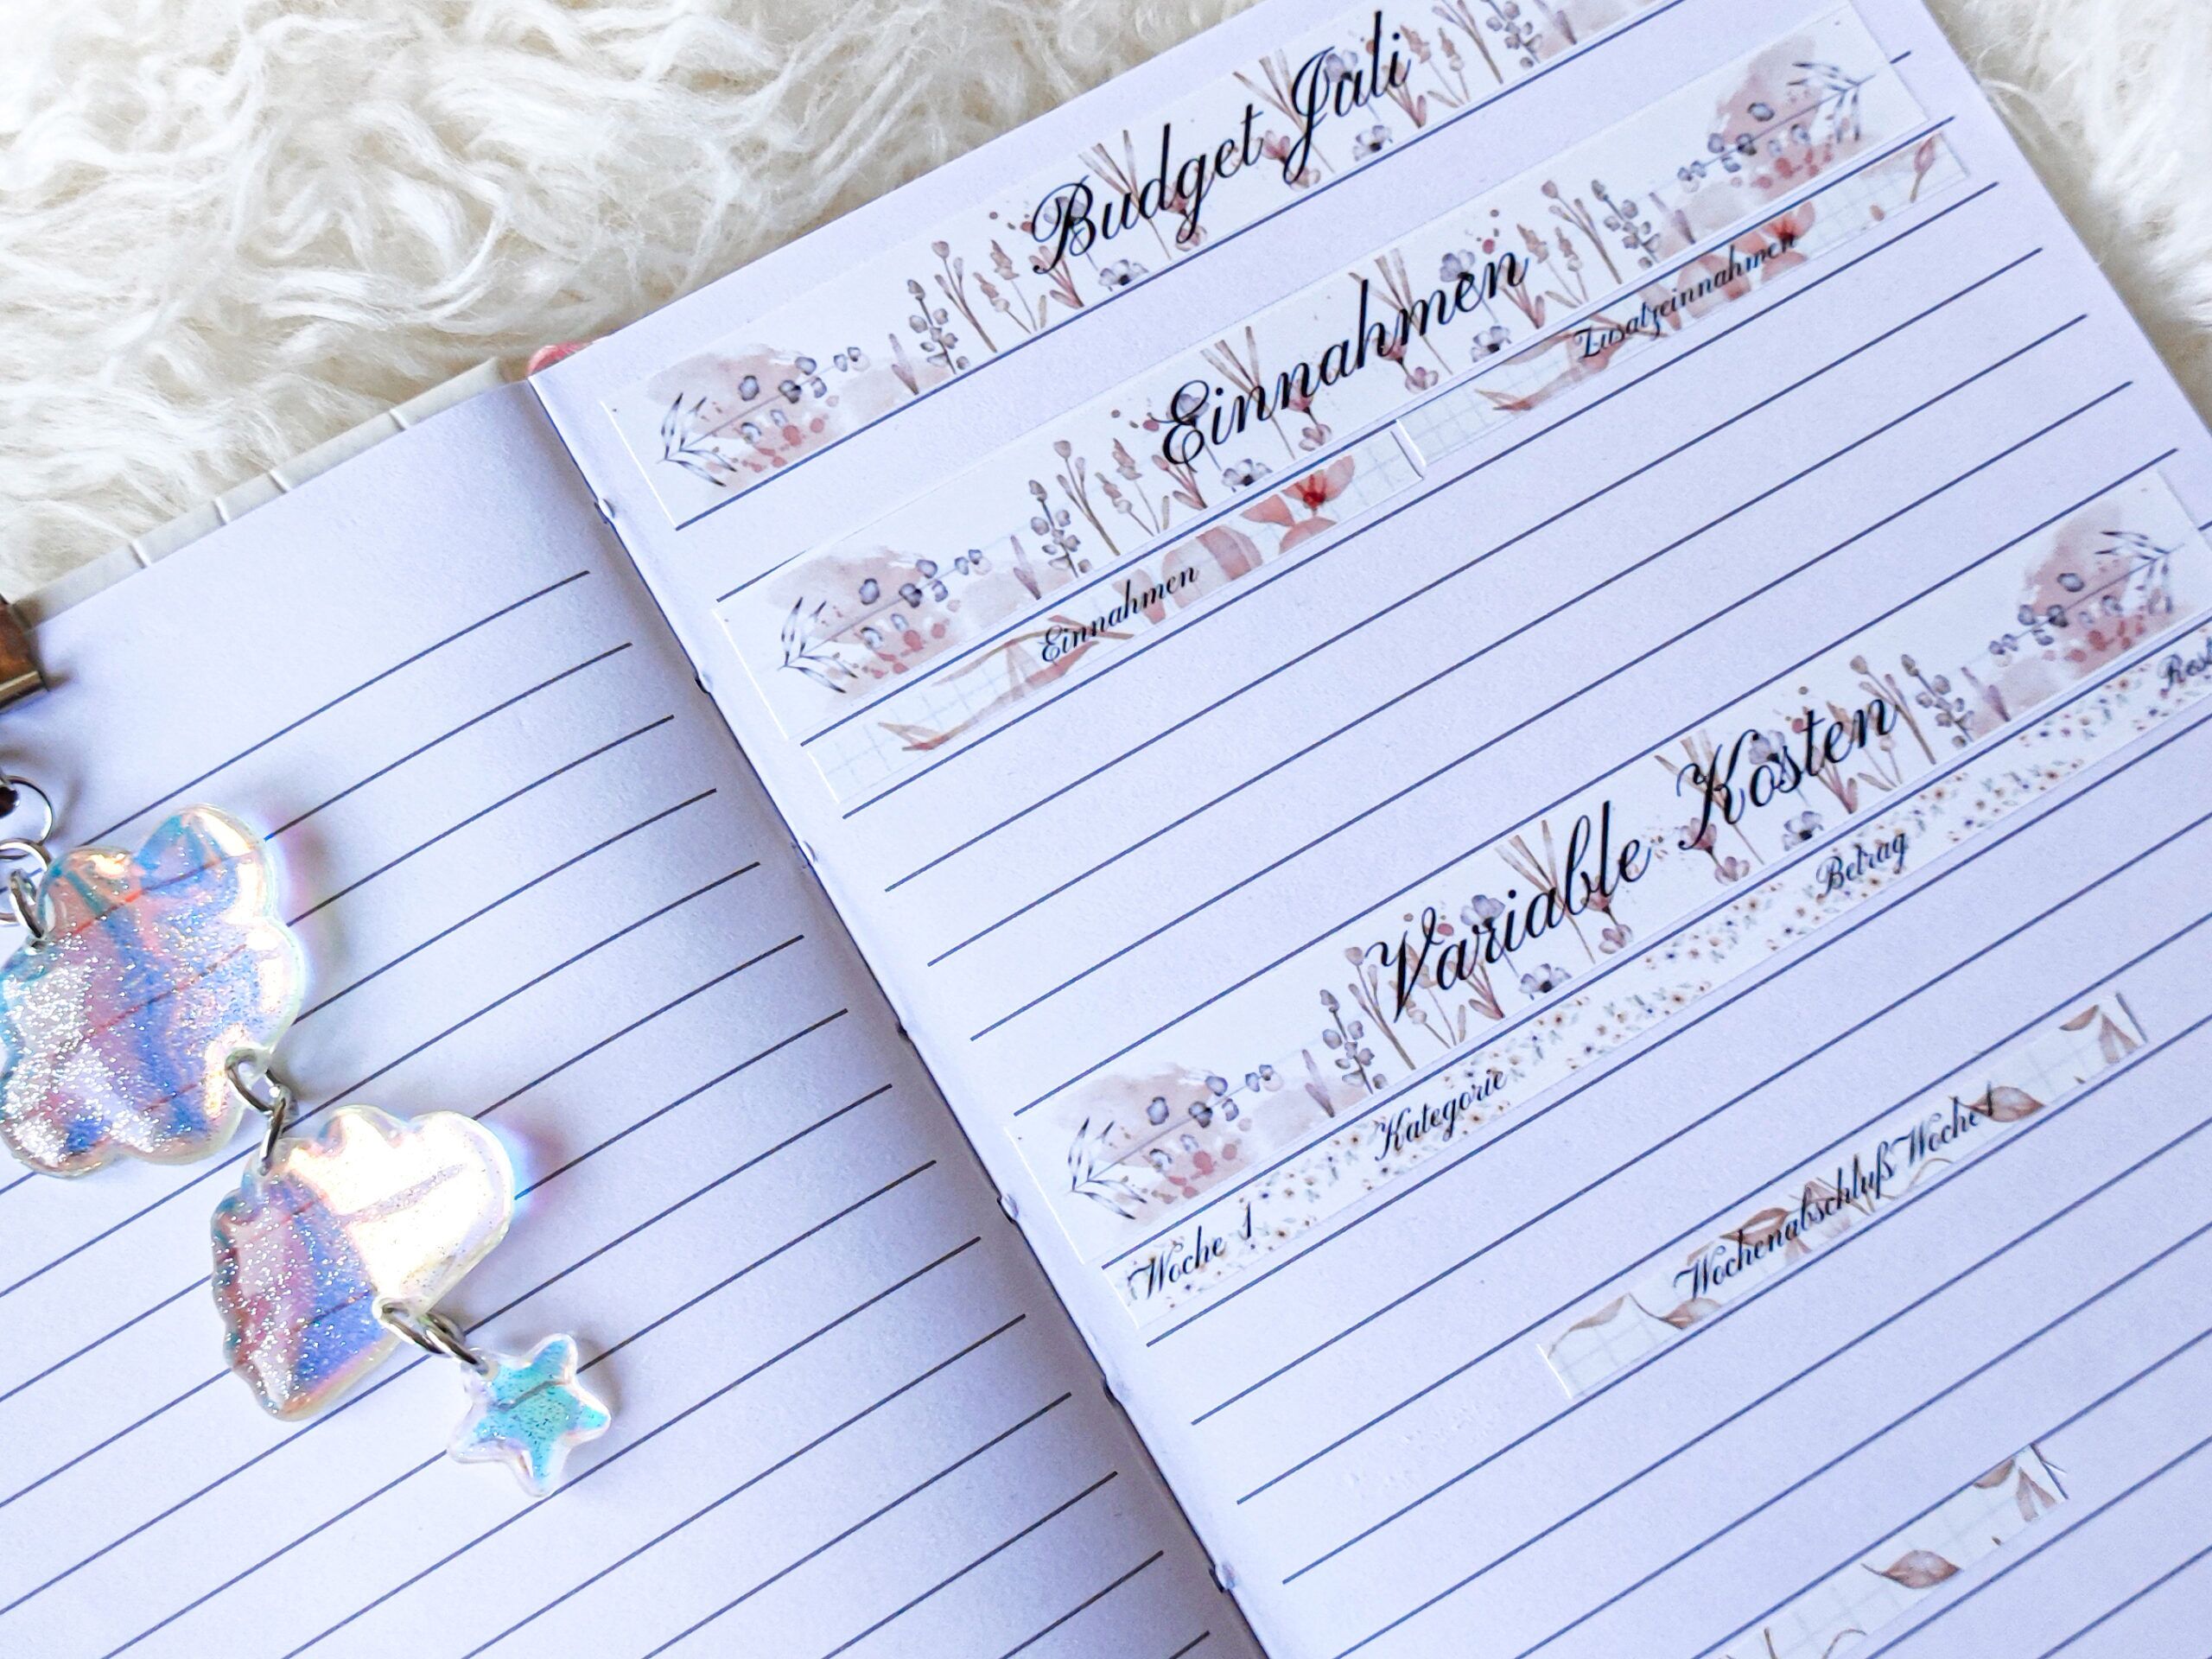 Budget Juli
Einnahmen
Einnahmen Zusatzeinnahmen
Variable Kosten
Woche 1 Kategorie Betrag
Wochenabschluß Woche 1